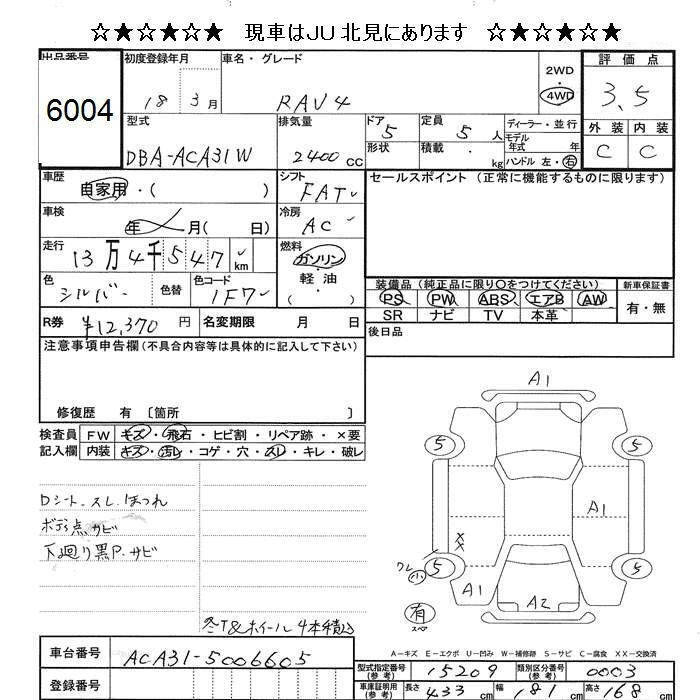 ☆★☆★☆ 現車はJU北見にあります ☆★☆★☆
出品番号 初度登録年月 車名・グレード 評価点
6004 18 3月 RAV4 2WD ・ 4WD 3.5
型式 排気量 ドア 定員 ディーラー・並行 外装 内装
DBA-ACA31W 2400cc 5 5人 モデル年式 年 C C
形状 積載 ・ kg ハンドル 左・右
車歴 自家用・( ) シフト FAT セールスポイント (正常に機能するものに限ります)
車検 年 月( 日) 冷房 AC
走行 13万4千547km 燃料 ガソリン・軽油・( )
色 シルバー 色替 色コード 1F7 装備品(純正品に限り○をつけてください) 新車保証書
PS PW ABS エアB AW 有・無
SR ナビ TV 本革
R券 ¥12,370円 名変期限 月 日 後日品
注意事項申告欄(不具合内容等は具体的に記入して下さい)
修復歴 有 〔箇所 〕
検査員 FW キズ・飛石・ヒビ割・リペア跡・×要
記入欄 内装 キズ・汚レ・コゲ・穴・スレ・キレ・破レ
Dシート、スレ、ほつれ
ボディ点サビ
下廻り黒P.サビ
冬T&ホイール4本積込
A1
5 5
A1
XX
ワレ 小 5 5
A1 A2
有
スペア
A-キズ E-エクボ U-凹み W-補修跡 S-サビ C-腐食 XX-交換済
車台番号 ACA31-5006605
型式指定番号(参考) 15209 類別区分番号(参考) 0003
登録番号
車庫証明用(参考) 長さ 433cm 幅 181cm 高さ 168cm